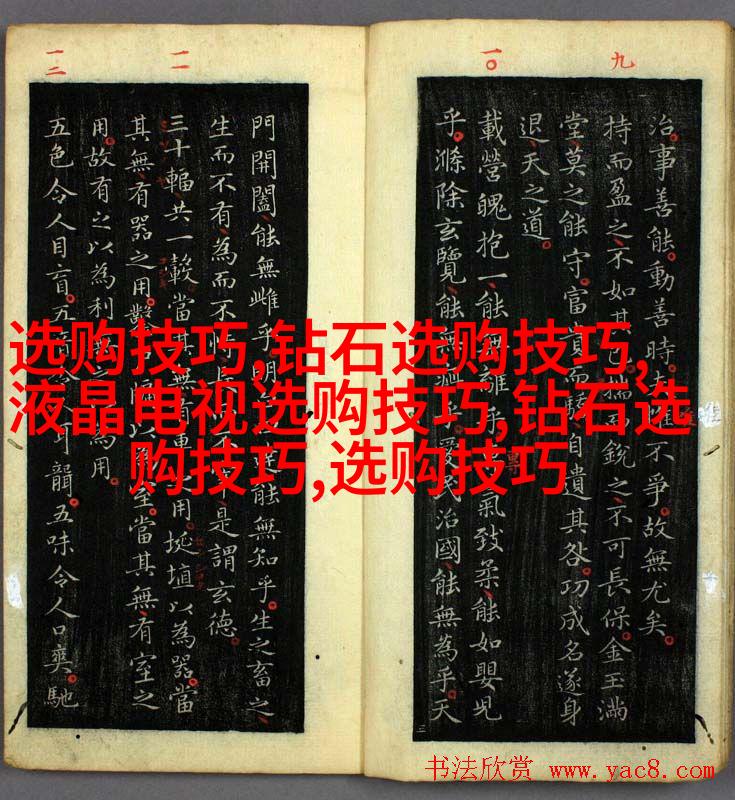 九
一〇
一一
一二
治事善能動善時夫唯不爭故無尤矣
持而盈之不如其揣而銳之不可長保金玉滿
堂莫之能守富貴而驕自遺其咎功成名遂身
退天之道
載營魄抱一能無離乎氣致柔能如嬰兒
乎滌除玄覽能無疵乎愛民治國能無為乎天
門開闔能無雌乎明達能無知乎生之畜之
生而不有為而不恃長而不是謂玄德
三十輻共一轂當其無有車之用埏埴以為器當
其無有器之用鑿戶牖以為室當其無有室之
用故有之以為利無之以為用
五色令人目盲五音令人耳聾五味令人口爽馳
选购技巧,钻石选购技巧,
液晶电视选购技巧,钻石选
购技巧,选购技巧
书法欣赏 www.yac8.com